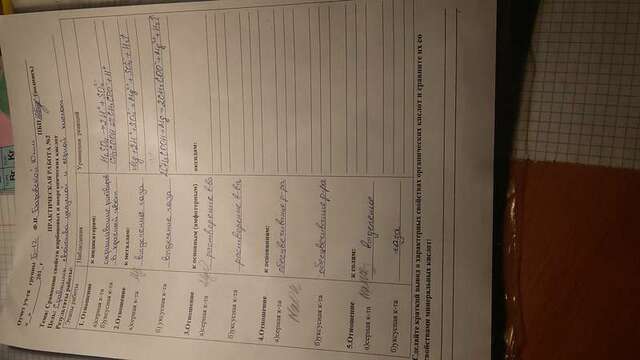 Br Kr
Отчет уч-ся группы Б-12 Ф.И. Базовской Юлии
" " 201_ г ПБП (подпись)
ПРАКТИЧЕСКАЯ РАБОТА №2
Тема: Сравнение свойств карбоновых и неорганических кислот
Цель: Сравнить свойства уксусной и серной кислот
Результаты работы:
Этапы работы Наблюдения Уравнения реакций
1. Отношение к индикаторам:
а)серная к-та окрашивание растворов H₂SO₄ → 2H⁺ + SO₄²⁻
б)уксусная к-та в красный цвет CH₃COOH ⇄ CH₃COO⁻ + H⁺
2.Отношение к металлам:
а)серная к-та Mg выделение газа Mg + 2H⁺ + SO₄²⁻ = Mg²⁺ + SO₄²⁻ + H₂↑
б) уксусная к-та выделение газа 2CH₃COOH + Mg → 2CH₃COO⁻ + Mg²⁺ + H₂↑
3.Отношение к основным (амфотерным) оксидам:
а)серная к-та растворение в-ва
б)уксусная к-та растворение в-ва
4.Отношение к основаниям:
а)серная к-та обесцвечивание р-ра
NaOH
б)уксусная к-та обесцвечивание р-ра
5.Отношение к солям:
а)серная к-та выделение
б)уксусная к-та газа
Сделайте краткий вывод о характерных свойствах органических кислот и сравните их со
свойствами минеральных кислот: